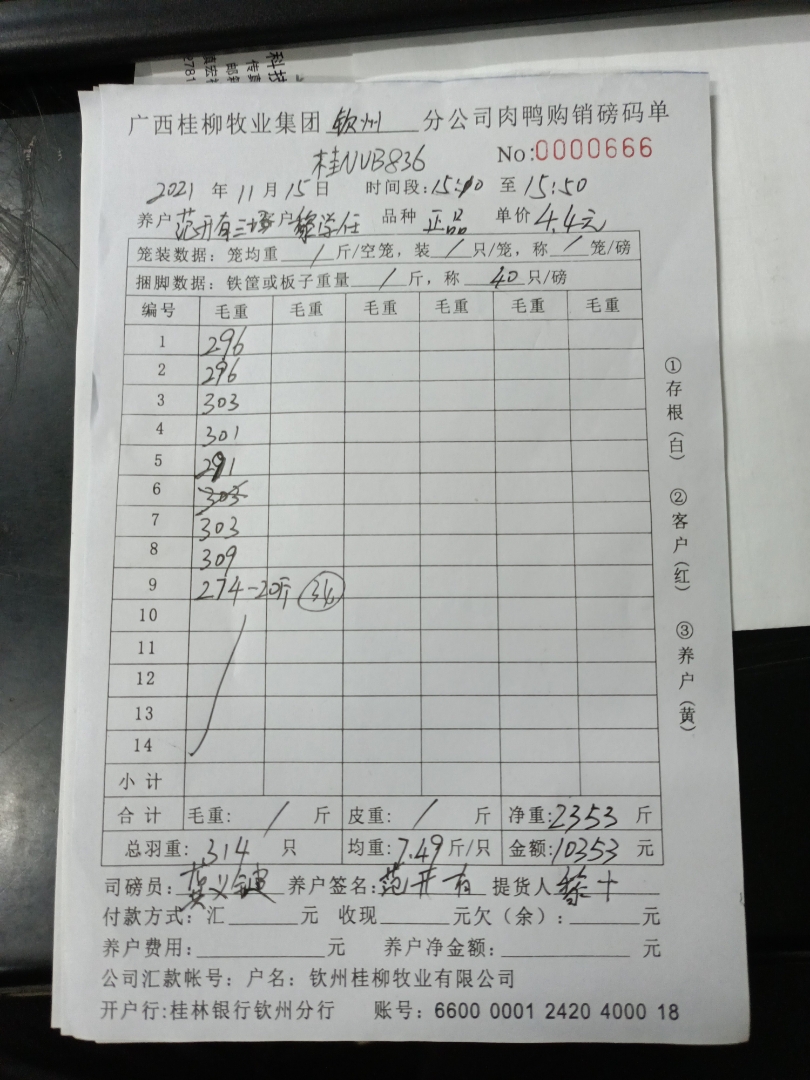 广西桂柳牧业集团 钦州 分公司肉鸭购销磅码单
桂NUB836 No:0000666
2021 年 11 月 15 日 时间段:15:10 至 15:50
养户 范开有三 户 黎学任 品种 正品 单价 4.4元
笼装数据: 笼均重 / 斤/空笼, 装 / 只/笼, 称 / 笼/磅
捆脚数据: 铁筐或板子重量 / 斤, 称 40 只/磅
编号 毛重 毛重 毛重 毛重 毛重 毛重
1 296
2 296
3 303
4 301
5 291
6 303
7 303
8 309
9 274-20斤 34
10
11
12
13
14
小计
合计 毛重: / 斤 皮重: / 斤 净重:2353 斤
总羽重: 314 只 均重:7.49斤/只 金额:10353 元
司磅员: 养户签名:范开有 提货人 黎十
付款方式: 汇 元 收现 元欠(余): 元
养户费用: 元 养户净金额: 元
公司汇款帐号: 户名: 钦州桂柳牧业有限公司
开户行:桂林银行钦州分行 账号: 6600 0001 2420 4000 18
①存根(白) ②客户(红) ③养户(黄)
科技
2781